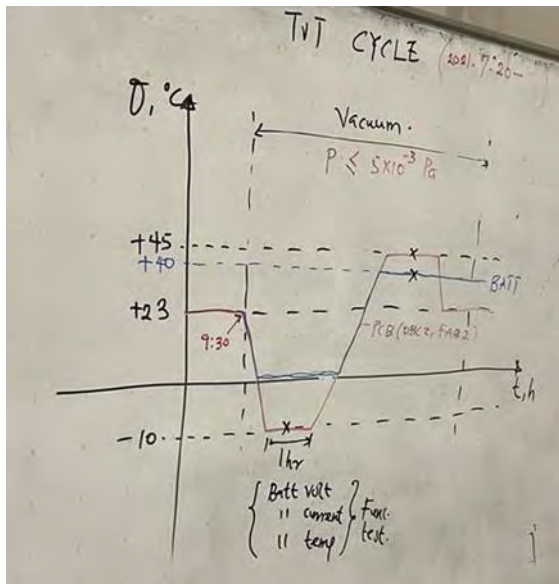 TVT CYCLE (2021.7.26-
T, °C
Vacuum.
P ≤ 5×10⁻³ Pa
+45
+40
BATT
+23
9:30
PCB (OBC2, FAB2)
t, h
-10
1hr
Batt volt
" current
" temp
Func.
test.